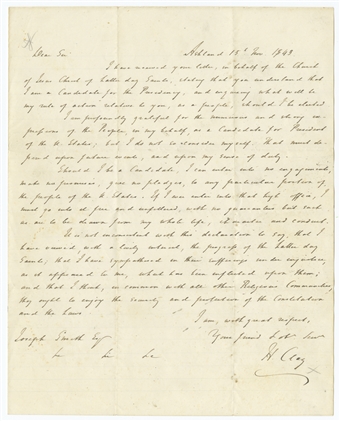 Dear Sir
Ashland 15th Nov 1843
I have received your letter, in behalf of the Church
of Jesus Christ of Latter day Saints, stating that you understand that
I am a Candidate for the Presidency, and enquiring what will be
my rule of action relative to you, as a people, should I be elected
I am profoundly grateful for the numerous and strong ex-
pressions of the People, in my behalf, as a Candidate for President
of the U. States; but I do not so consider myself. That must de-
pend upon future events, and upon my sense of duty.
Should I be a Candidate, I can enter into no engagements,
make no promises, give no pledges, to any particular portion of
the people of the U. States. If I ever enter into that high office, I
must go into it free and unfettered, with no guarantees but such
as are to be drawn from my whole life, character and conduct.
It is not inconsistent with this declaration to say, that I
have viewed, with a lively interest, the progress of the Latter day
Saints; that I have sympathized in their sufferings under injustice,
as it appeared to me, which has been inflicted upon them;
and that I think, in common with all other Religious Communities,
they ought to enjoy the security and protection of the Constitution
and the Laws.
I am, with great respect,
Joseph Smith Esq
Your friend & ob. Serv
H. Clay